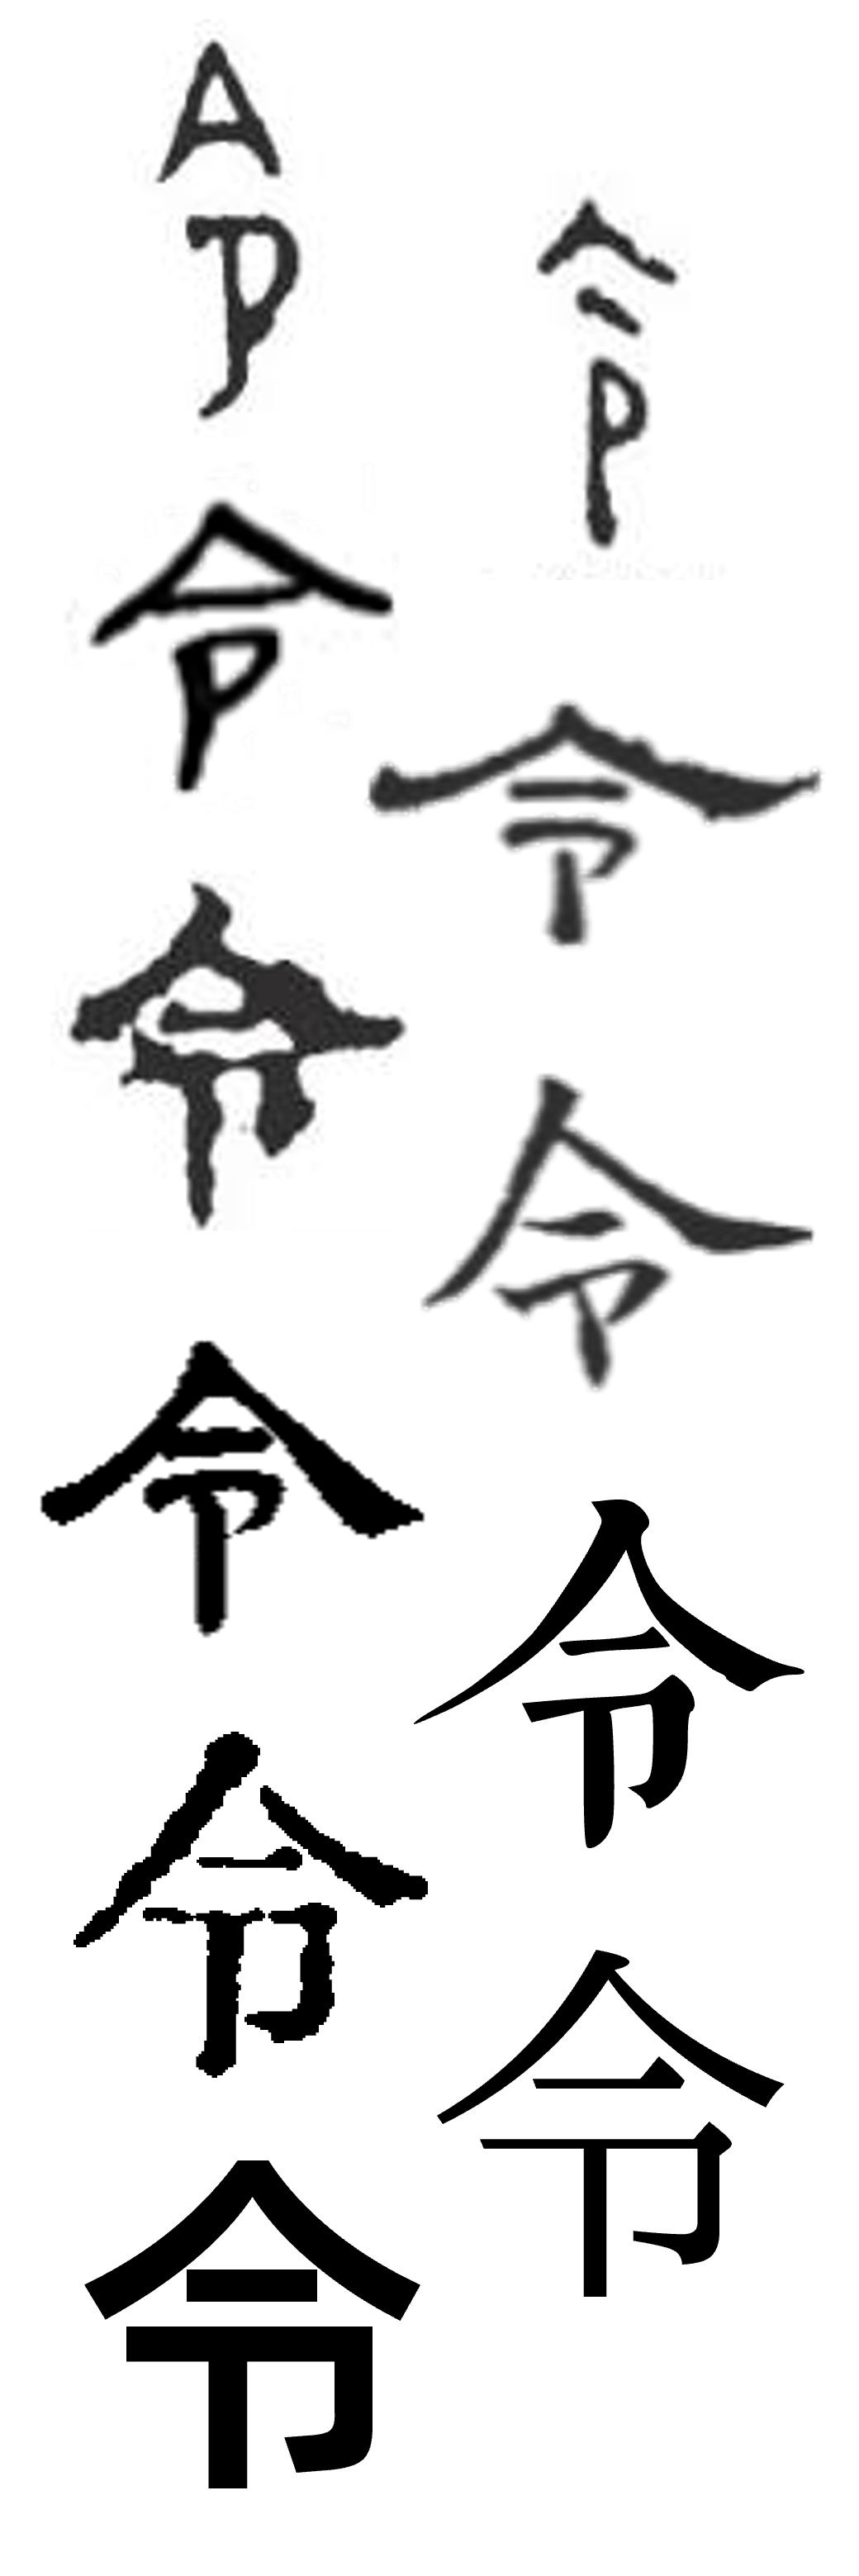 令
令
令
令
令
令
令
令
令
令
令